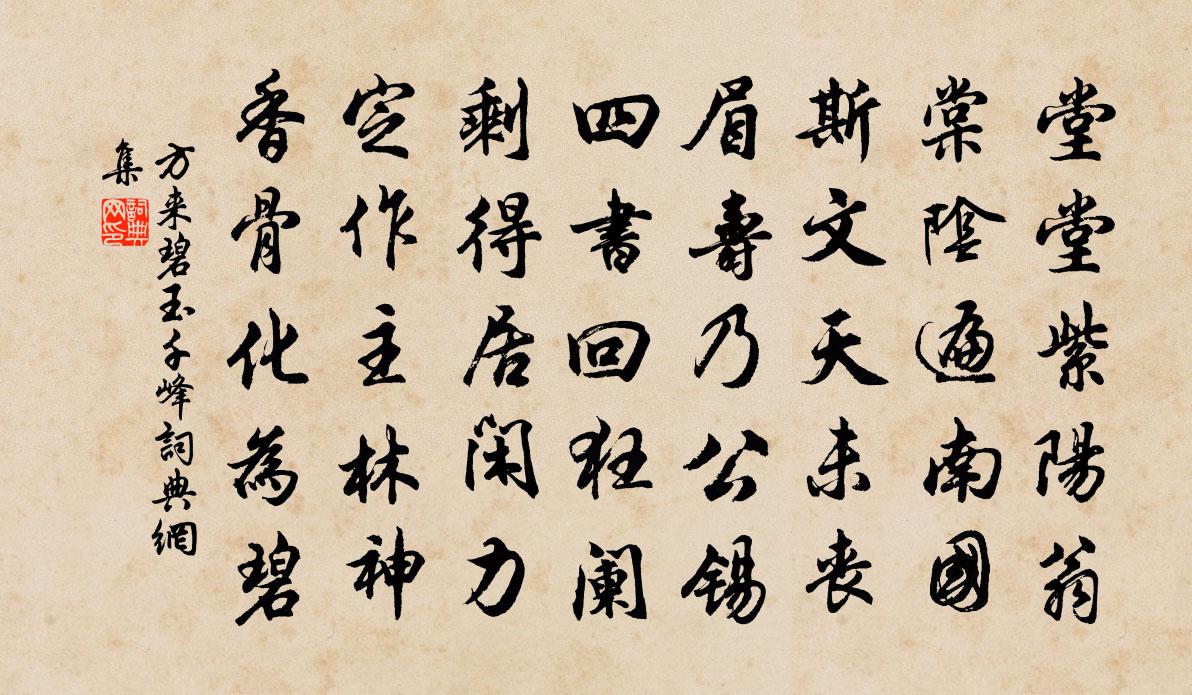 堂堂紫陽翁
棠陰遍南國
斯文天未喪
眉壽乃公錫
四書回狂闌
剩得居閑力
定作主林神
香骨化為碧
方來碧玉千峰詞典網
集
詞典
网印